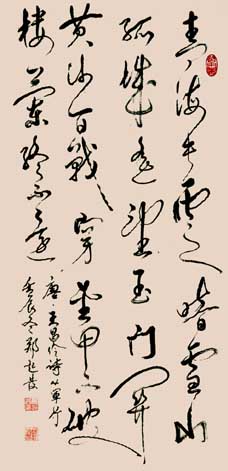 青海长云暗雪山
孤城遥望玉门关
黄沙百戰穿金甲不破
楼兰终不还
唐王昌龄诗从軍行
壬辰冬郑